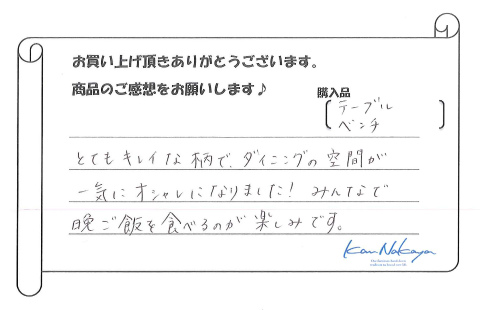 お買い上げ頂きありがとうございます。
商品のご感想をお願いします♪
購入品
テーブル
ベンチ
とてもキレイな柄で、ダイニングの空間が
一気にオシャレになりました! みんなで
晩ご飯を食べるのが楽しみです。
Kan Nakaya